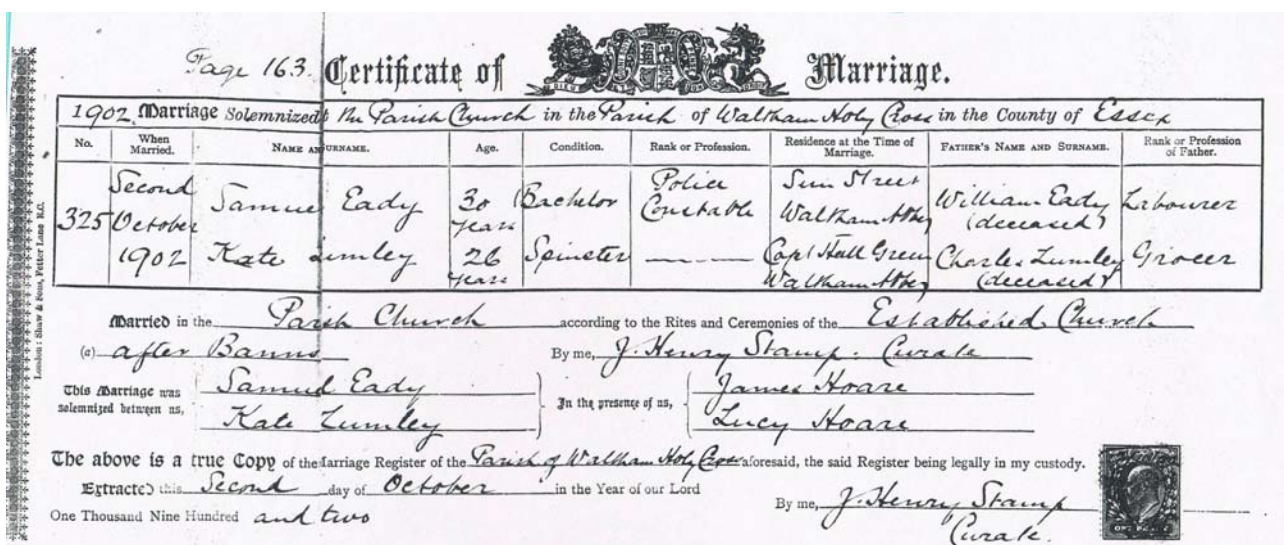 Page 163. Certificate of Marriage.
1902. Marriage Solemnized at the Parish Church in the Parish of Waltham Holy Cross in the County of Essex
No. When Married. NAME AND SURNAME. Age. Condition. Rank or Profession. Residence at the Time of Marriage. FATHER'S NAME AND SURNAME. Rank or Profession of Father.
325 Second October 1902 Samuel Eady 30 years Bachelor Police Constable Sun Street Waltham Abbey William Eady (deceased) Labourer
Kate Lumley 26 years Spinster — Copt Hall Green Waltham Abbey Charles Lumley (deceased) Grocer
Married in the Parish Church according to the Rites and Ceremonies of the Established Church
(a) after Banns By me, J. Henry Stamp. Curate
This Marriage was solemnized between us, Samuel Eady In the presence of us, James Hoare
Kate Lumley Lucy Hoare
The above is a true Copy of the Marriage Register of the Parish of Waltham Holy Cross aforesaid, the said Register being legally in my custody.
Extracted this Second day of October in the Year of our Lord
One Thousand Nine Hundred and two By me, J. Henry Stamp
Curate.
London: Shaw & Sons, Fetter Lane E.C.
ONE PENNY